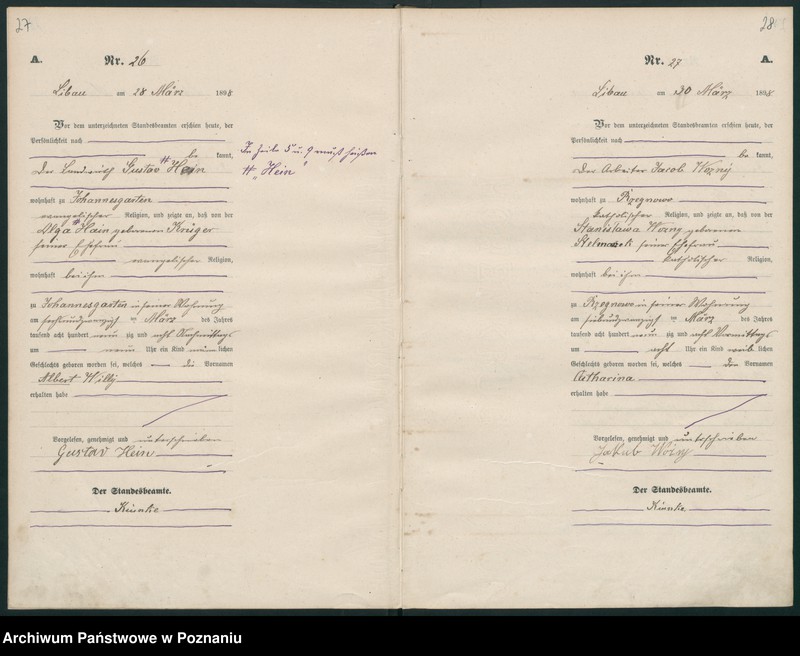 27
A.
Nr. 26
Libau am 28 März 1898
Vor dem unterzeichneten Standesbeamten erschien heute, der
Persönlichkeit nach
be kannt,
der Landwirth Gustav # Hein
wohnhaft zu Johannesgarten
evangelischer Religion, und zeigte an, daß von der
Olga # Hain geborenen Krüger
seiner Ehefrau
evangelischer Religion,
wohnhaft bei ihm
zu Johannesgarten in seiner Wohnung
am sechsundzwanzigsten März des Jahres
tausend acht hundert neun zig und acht Nachmittags
um neun Uhr ein Kind männlichen
Geschlechts geboren worden sei, welches die Vornamen
Albert Willy
erhalten habe
Vorgelesen, genehmigt und unterschrieben
Gustav Hein
Der Standesbeamte.
In Zeile 5 u. 9 muß heißen
# „Hein"
28
Nr. 27
A.
Libau am 30 März 1898
Vor dem unterzeichneten Standesbeamten erschien heute, der
Persönlichkeit nach
be kannt,
der Arbeiter Jacob Wozny
wohnhaft zu Rzegnowo
katholischer Religion, und zeigte an, daß von der
Stanislawa Wozny geborenen
Stelmaszek seiner Ehefrau
katholischer Religion,
wohnhaft bei ihm
zu Rzegnowo in seiner Wohnung
am siebenundzwanzigsten März des Jahres
tausend acht hundert neun zig und acht Vormittags
um acht Uhr ein Kind weib lichen
Geschlechts geboren worden sei, welches den Vornamen
Catharina
erhalten habe
Vorgelesen, genehmigt und unterschrieben
Jakub Wozny
Der Standesbeamte.
Archiwum Państwowe w Poznaniu